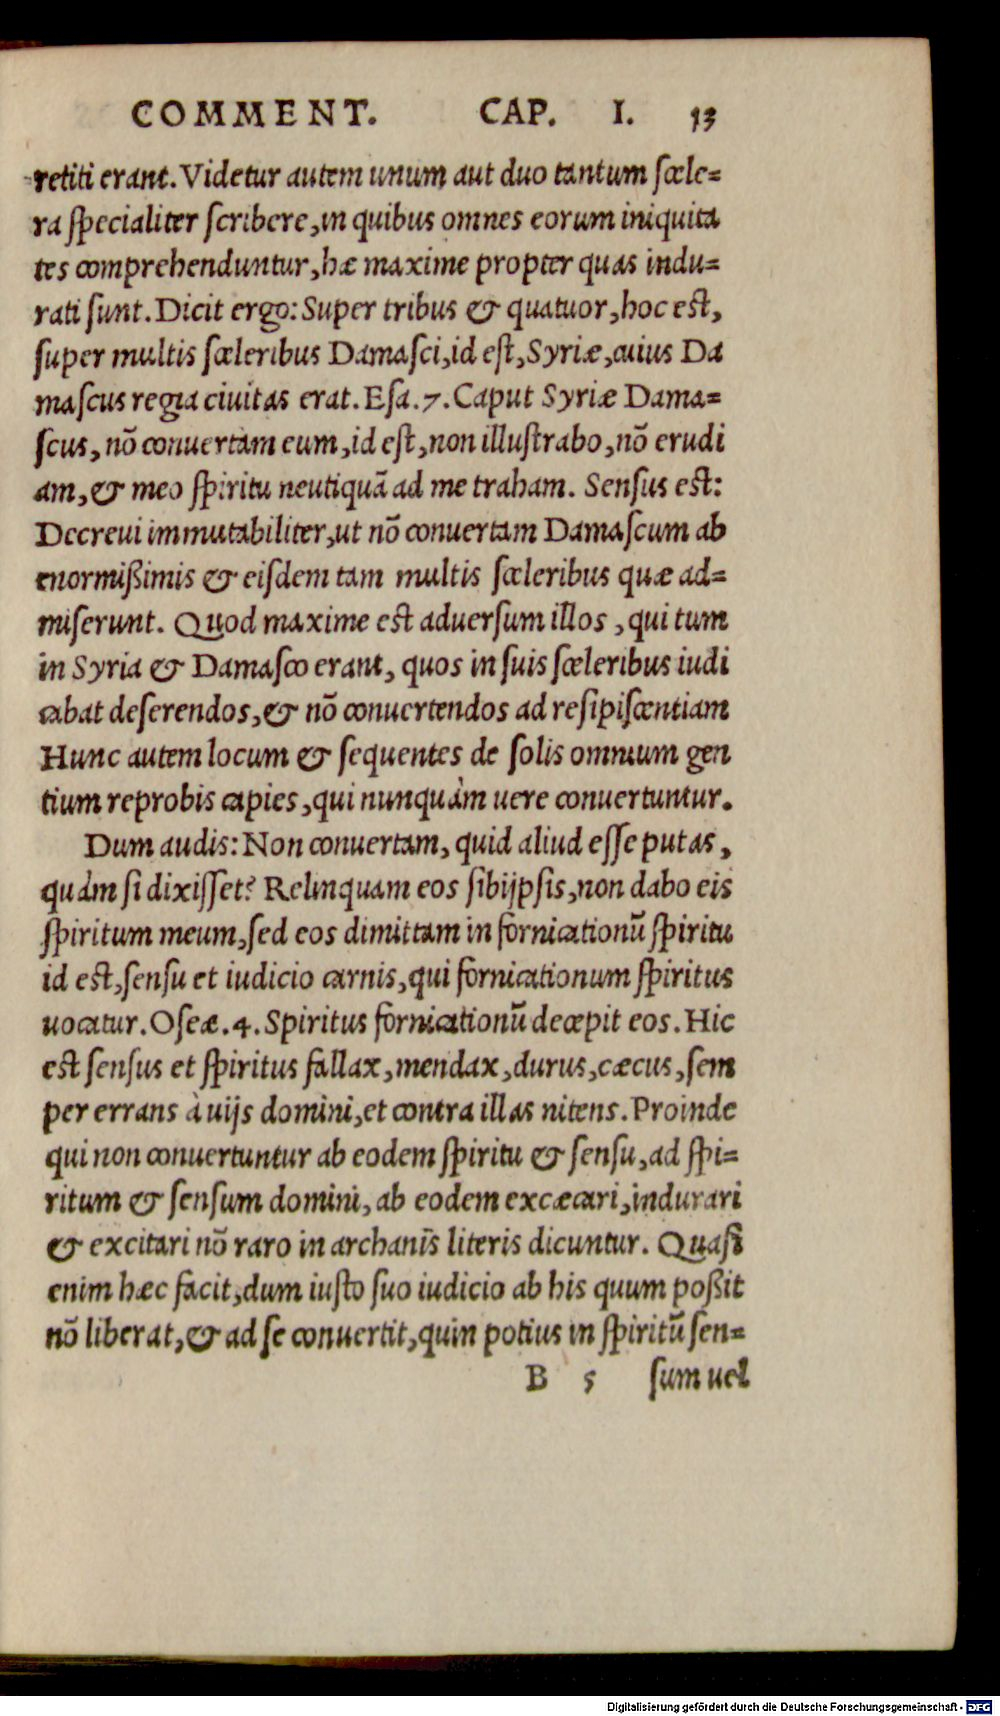 COMMENT. CAP. I. 13
retiti erant. Videtur autem unum aut duo tantum scele=
ra specialiter scribere, in quibus omnes eorum iniquita
tes comprehenduntur, hæ maxime propter quas indu=
rati sunt. Dicit ergo: Super tribus & quatuor, hoc est,
super multis sceleribus Damasci, id est, Syriæ, cuius Da
mascus regia ciuitas erat. Esa. 7. Caput Syriæ Dama=
scus, nō conuertam eum, id est, non illustrabo, nō erudi
am, & meo spiritu neutiquā ad me traham. Sensus est:
Decreui immutabiliter, ut nō conuertam Damascum ab
enormißimis & eisdem tam multis sceleribus quæ ad=
miserunt. Quod maxime est aduersum illos, qui tum
in Syria & Damasco erant, quos in suis sceleribus iudi
cabat deserendos, & nō conuertendos ad resipiscentiam
Hunc autem locum & sequentes de solis omnium gen
tium reprobis capies, qui nunquàm uere conuertuntur.
Dum audis: Non conuertam, quid aliud esse putas,
quàm si dixisset? Relinquam eos sibijpsis, non dabo eis
spiritum meum, sed eos dimittam in fornicationū spiritu
id est, sensu et iudicio carnis, qui fornicationum spiritus
uocatur. Oseæ. 4. Spiritus fornicationū decepit eos. Hic
est sensus et spiritus fallax, mendax, durus, cæcus, sem
per errans à uijs domini, et contra illas nitens. Proinde
qui non conuertuntur ab eodem spiritu & sensu, ad spi=
ritum & sensum domini, ab eodem excæcari, indurari
& excitari nō raro in archanis literis dicuntur. Quasi
enim hæc facit, dum iusto suo iudicio ab his quum poßit
nō liberat, & ad se conuertit, quin potius in spiritū sen=
B 5 sum uel
Digitalisierung gefördert durch die Deutsche Forschungsgemeinschaft - DFG